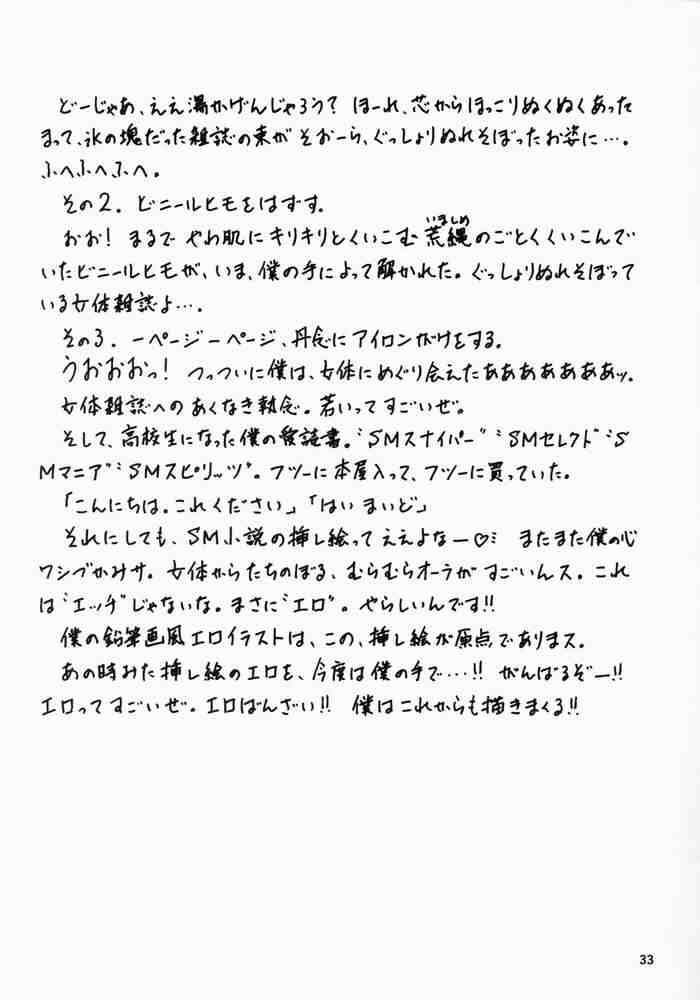 どーじゃあ、ええ湯かげんじゃろう? ほーれ、芯からほっこりぬくぬくあった
まって、氷の塊だった雑誌の束が そおーら、ぐっしょりぬれそぼったお姿に…。
ふへふへふへ。
その2. ビニールヒモをはずす.
おお! まるで やわ肌にキリキリとくいこむ 荒縄のごとくくいこんで
いましめ
いたビニールヒモが、いま、僕の手によって解かれた。ぐっしょりぬれそぼって
いる女体雑誌よ…。
その3. 一ページ一ページ、丹念にアイロンがけをする.
うおおおっ! つっついに僕は、女体にめぐり会えたああああああッ.
女体雑誌へのあくなき執念。若いってすごいぜ。
そして、高校生になった僕の愛読書。〝SMスナイパー〟〝SMセレクト〟〝S
Mマニア〟〝SMスピリッツ〟。フツーに本屋入って、フツーに買っていた。
「こんにちは。これください」「はい まいど」
それにしても、SM小説の挿し絵って ええよなー♡ またまた僕の心
ワシづかみサ。女体からたちのぼる、むらむらオーラがすごいんス。これ
は〝エッチ〟じゃないな。まさに〝エロ〟。やらしいんです!!
僕の鉛筆画風エロイラストは、この、挿し絵が原点でありまス。
あの時みた挿し絵のエロを、今度は僕の手で…!! がんばるぞー!!
エロってすごいぜ。エロばんざい!! 僕はこれからも描きまくる!!
33